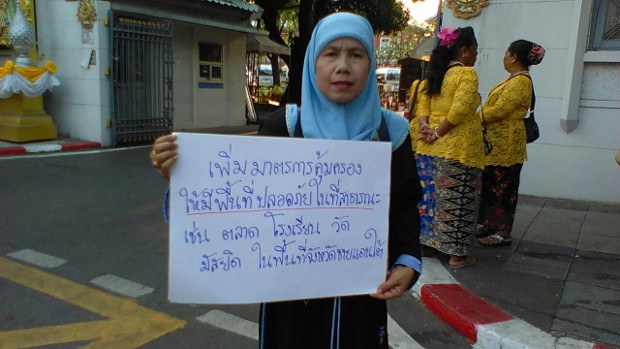 เพิ่มมาตรการคุ้มครอง
ให้มีพื้นที่ปลอดภัยในที่สาธารณะ
เช่น ตลาด โรงเรียน วัด
มัสยิด ในพื้นที่จังหวัดชายแดนใต้